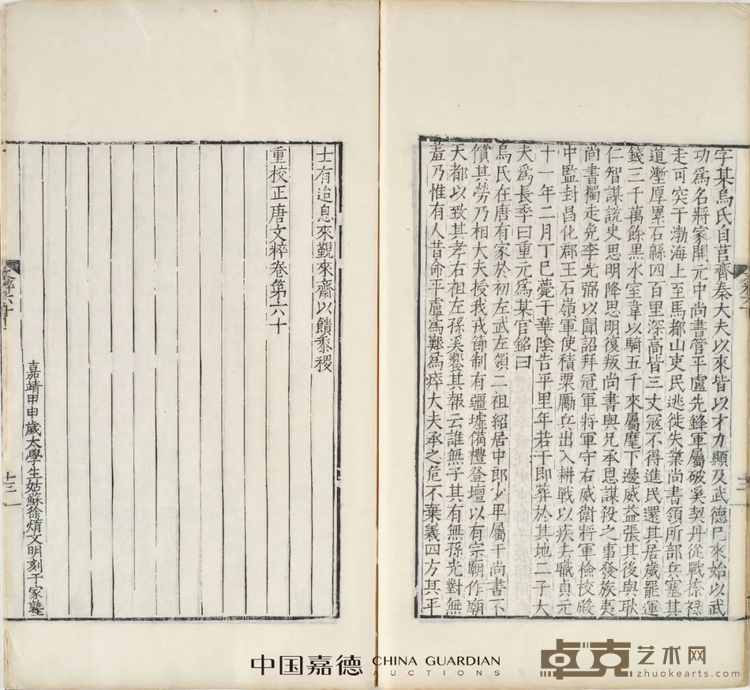 字某烏氏自莒齊秦大夫以來皆以才力顯及武德已來始以武
功為名將家開元中尚書管平盧先鋒軍屬破奚契丹從戰捺禄
走可突干渤海上至馬都山吏民逃徙失業尚書領所部兵塞其
道壍厚累石緜四百里深高皆三丈冦不得進民還其居歲罷運
錢三千萬餘黒水室韋以騎五千來屬麾下邊威益張其後與耿
仁智謀說史思明降思明復叛尚書與兄承恩謀殺之事發族夷
尚書獨走免李光弼以聞詔拜冠軍將軍守右威衛將軍檢校殿
中監封昌化郡王石嶺軍使積粟勵兵出入耕戰以疾去職貞元
十一年二月丁巳薨于華陰告平里年若干即葬於其地二子大
夫為長季曰重元為某官銘曰
烏氏在唐有家於初左武左領二祖紹居中郎少卑屬于尚書不
償其勞乃相大夫授我戎節制有疆墟備禮登壇以有宗廟作廟
天都以致其孝右祖左孫爰饗其報云誰無子其有無孫光對無
羞乃惟有人昔命平盧為艱為瘁大夫承之危不棄義四方其平
士有迨息來覲來齋以饋黍稷
重校正唐文粹卷第六十
嘉靖甲申歲太學生姑蘇徐焴文明刻于家塾
中国嘉德 CHINA GUARDIAN
AUCTIONS
卓克艺术网
zhuokearts.com